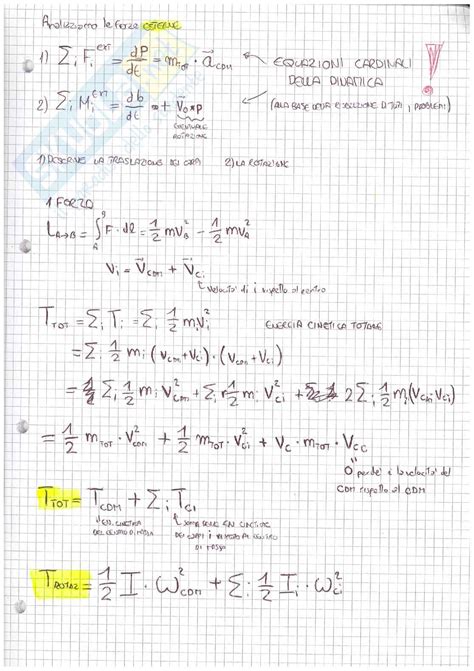 Analizziamo le forze ESTERNE
1) Σi Fi^ext = dP/dt = m_TOT · a⃗_CDM ← EQUAZIONI CARDINALI DELLA DINAMICA !
2) Σi Mi^ext = db/dt = + v⃗o × p (ALLA BASE DELLA RISOLUZIONE DI TUTTI I PROBLEMI)
EVENTUALE ROTAZIONE
1) DESCRIVE LA TRASLAZIONE DEI CORPI 2) LA ROTAZIONE
1 FORZA
L_A→B = ∫_A^B F · dl = 1/2 mv_B² - 1/2 mv_A²
Vi = V⃗_CDM + V⃗_Ci
velocita' di i rispetto al centro
T_TOT = Σi Ti = Σi 1/2 mi vi² ENERGIA CINETICA TOTALE
= Σi 1/2 mi (V_CM + V_Ci) · (V_CM + V_Ci)
= Σi 1/2 mi V_CM² + Σi 1/2 mi V_Ci² + 2 Σi 1/2 mi (V_CM V_Ci)
= 1/2 m_TOT · V_CDM² + 1/2 m_TOT · V_Ci² + V_C · m_TOT · V_CC
0 perché è la velocita' del CDM rispetto al CDM
T_TOT = T_CDM + Σi T_Ci
EN. CINETICA DEL CENTRO DI MASSA
SOMMA DELLE EN CINETICHE DEI CORPI RISPETTO AL CENTRO DI MASSA
T_ROTAZ = 1/2 I · ω_CDM² + Σi 1/2 Ii · ω_Ci²